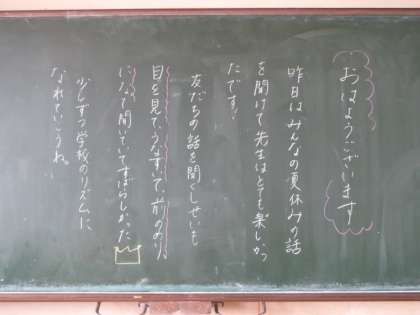 おはようございます
昨日はみんなの夏休みの話
を聞けて先生はとても楽しかっ
たです。
友だちの話を聞くしせいも
目を見て、うなずいて、前のめり
になって聞いていてすばらしかった
少しずつ学校のリズムに
なれていこうね。